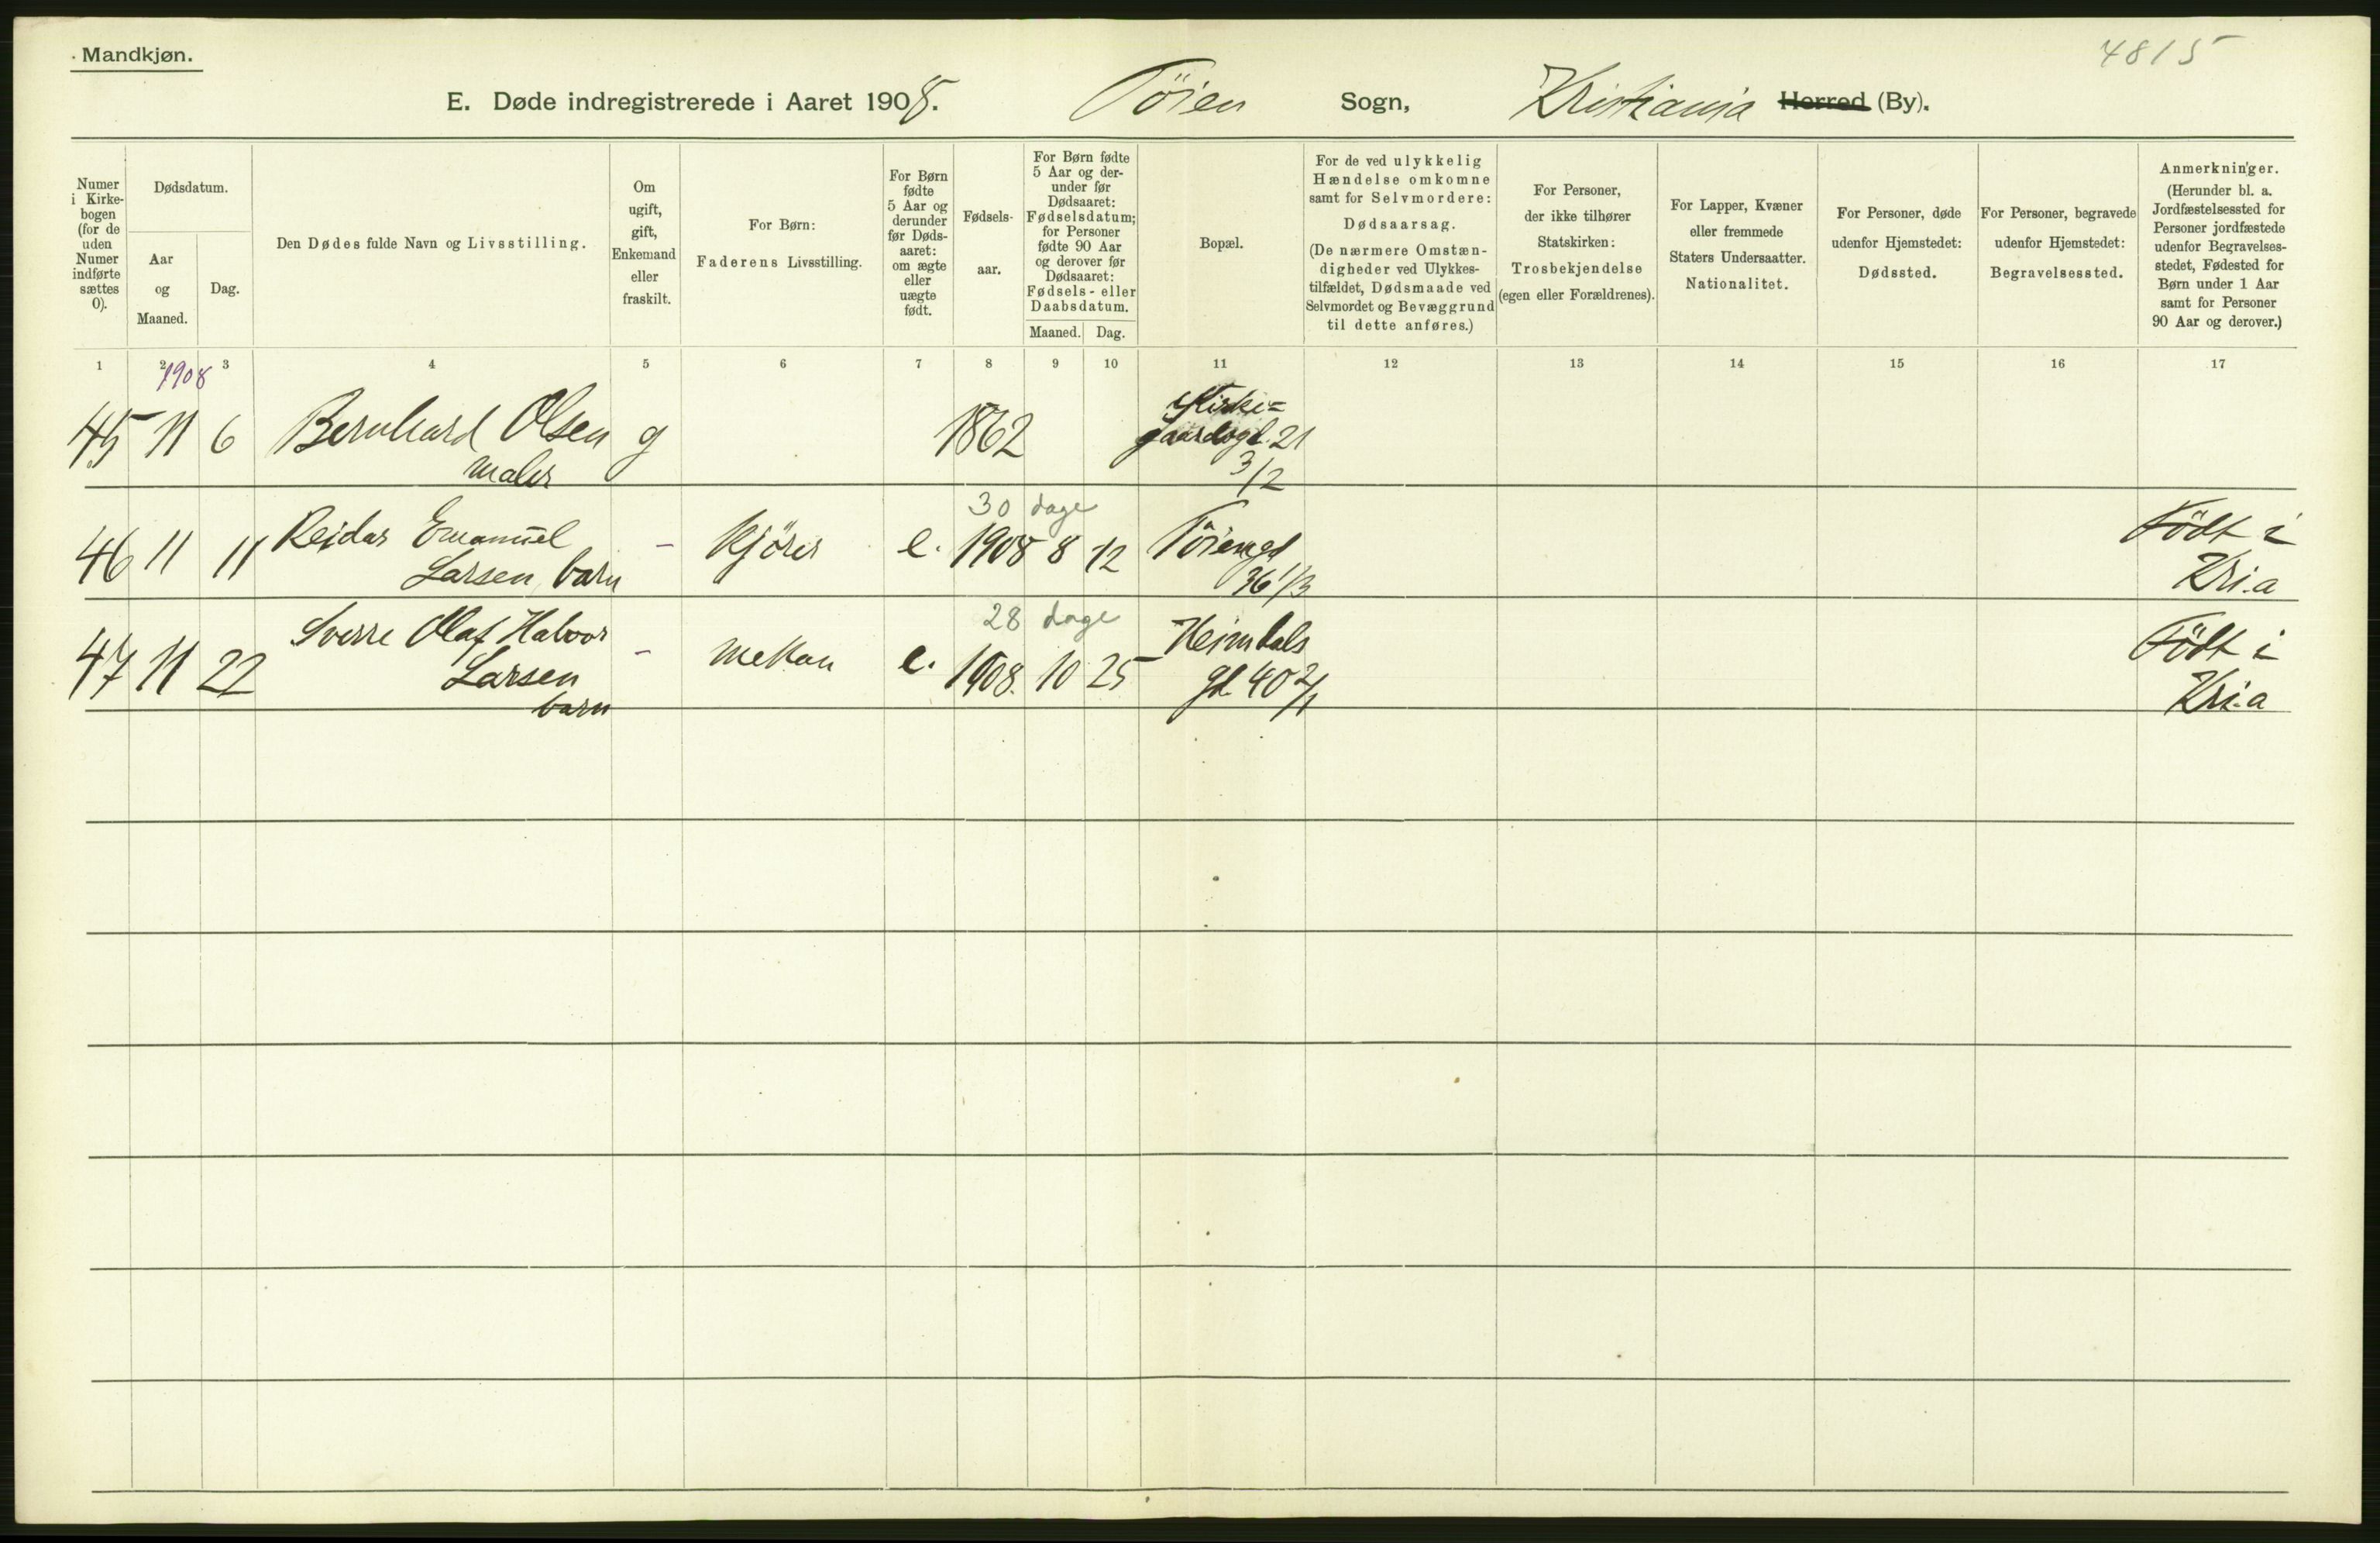 Mandkjøn.
4815
E. Døde indregistrerede i Aaret 1908. Töien Sogn, Kristiania Herred (By).
Numer i Kirkebogen (for de uden Numer indførte sættes 0).
Dødsdatum.
Aar og Maaned.
Dag.
Den Dødes fulde Navn og Livsstilling.
Om ugift, gift, Enkemand eller fraskilt.
For Børn: Faderens Livsstilling.
For Børn fødte 5 Aar og derunder før Dødsaaret: om ægte eller uægte født.
Fødselsaar.
For Børn fødte 5 Aar og derunder før Dødsaaret: Fødselsdatum; for Personer fødte 90 Aar og derover før Dødsaaret: Fødsels- eller Daabsdatum.
Maaned. Dag.
Bopæl.
For de ved ulykkelig Hændelse omkomne samt for Selvmordere: Dødsaarsag. (De nærmere Omstændigheder ved Ulykkestilfældet, Dødsmaade ved Selvmordet og Bevæggrund til dette anføres.)
For Personer, der ikke tilhører Statskirken: Trosbekjendelse (egen eller Forældrenes).
For Lapper, Kvæner eller fremmede Staters Undersaatter. Nationalitet.
For Personer, døde udenfor Hjemstedet: Dødssted.
For Personer, begravede udenfor Hjemstedet: Begravelsessted.
Anmerkninger. (Herunder bl. a. Jordfæstelsessted for Personer jordfæstede udenfor Begravelsesstedet, Fødested for Børn under 1 Aar samt for Personer 90 Aar og derover.)
1 2 3 4 5 6 7 8 9 10 11 12 13 14 15 16 17
1908
45 11 6 Bernhard Olsen g 1862 Kirke=
maler gaardsgd. 21
3/2
30 dage
46 11 11 Reidar Emanuel - Kjörer e. 1908 8 12 Töiengd Födt i
Larsen, barn 36 1/3 Kri.a
28 dage
47 11 22 Sverre Olaf Halvor - mekan e. 1908. 10 25 Heimdals Födt i
Larsen gd. 40 2/1 Kri.a
barn